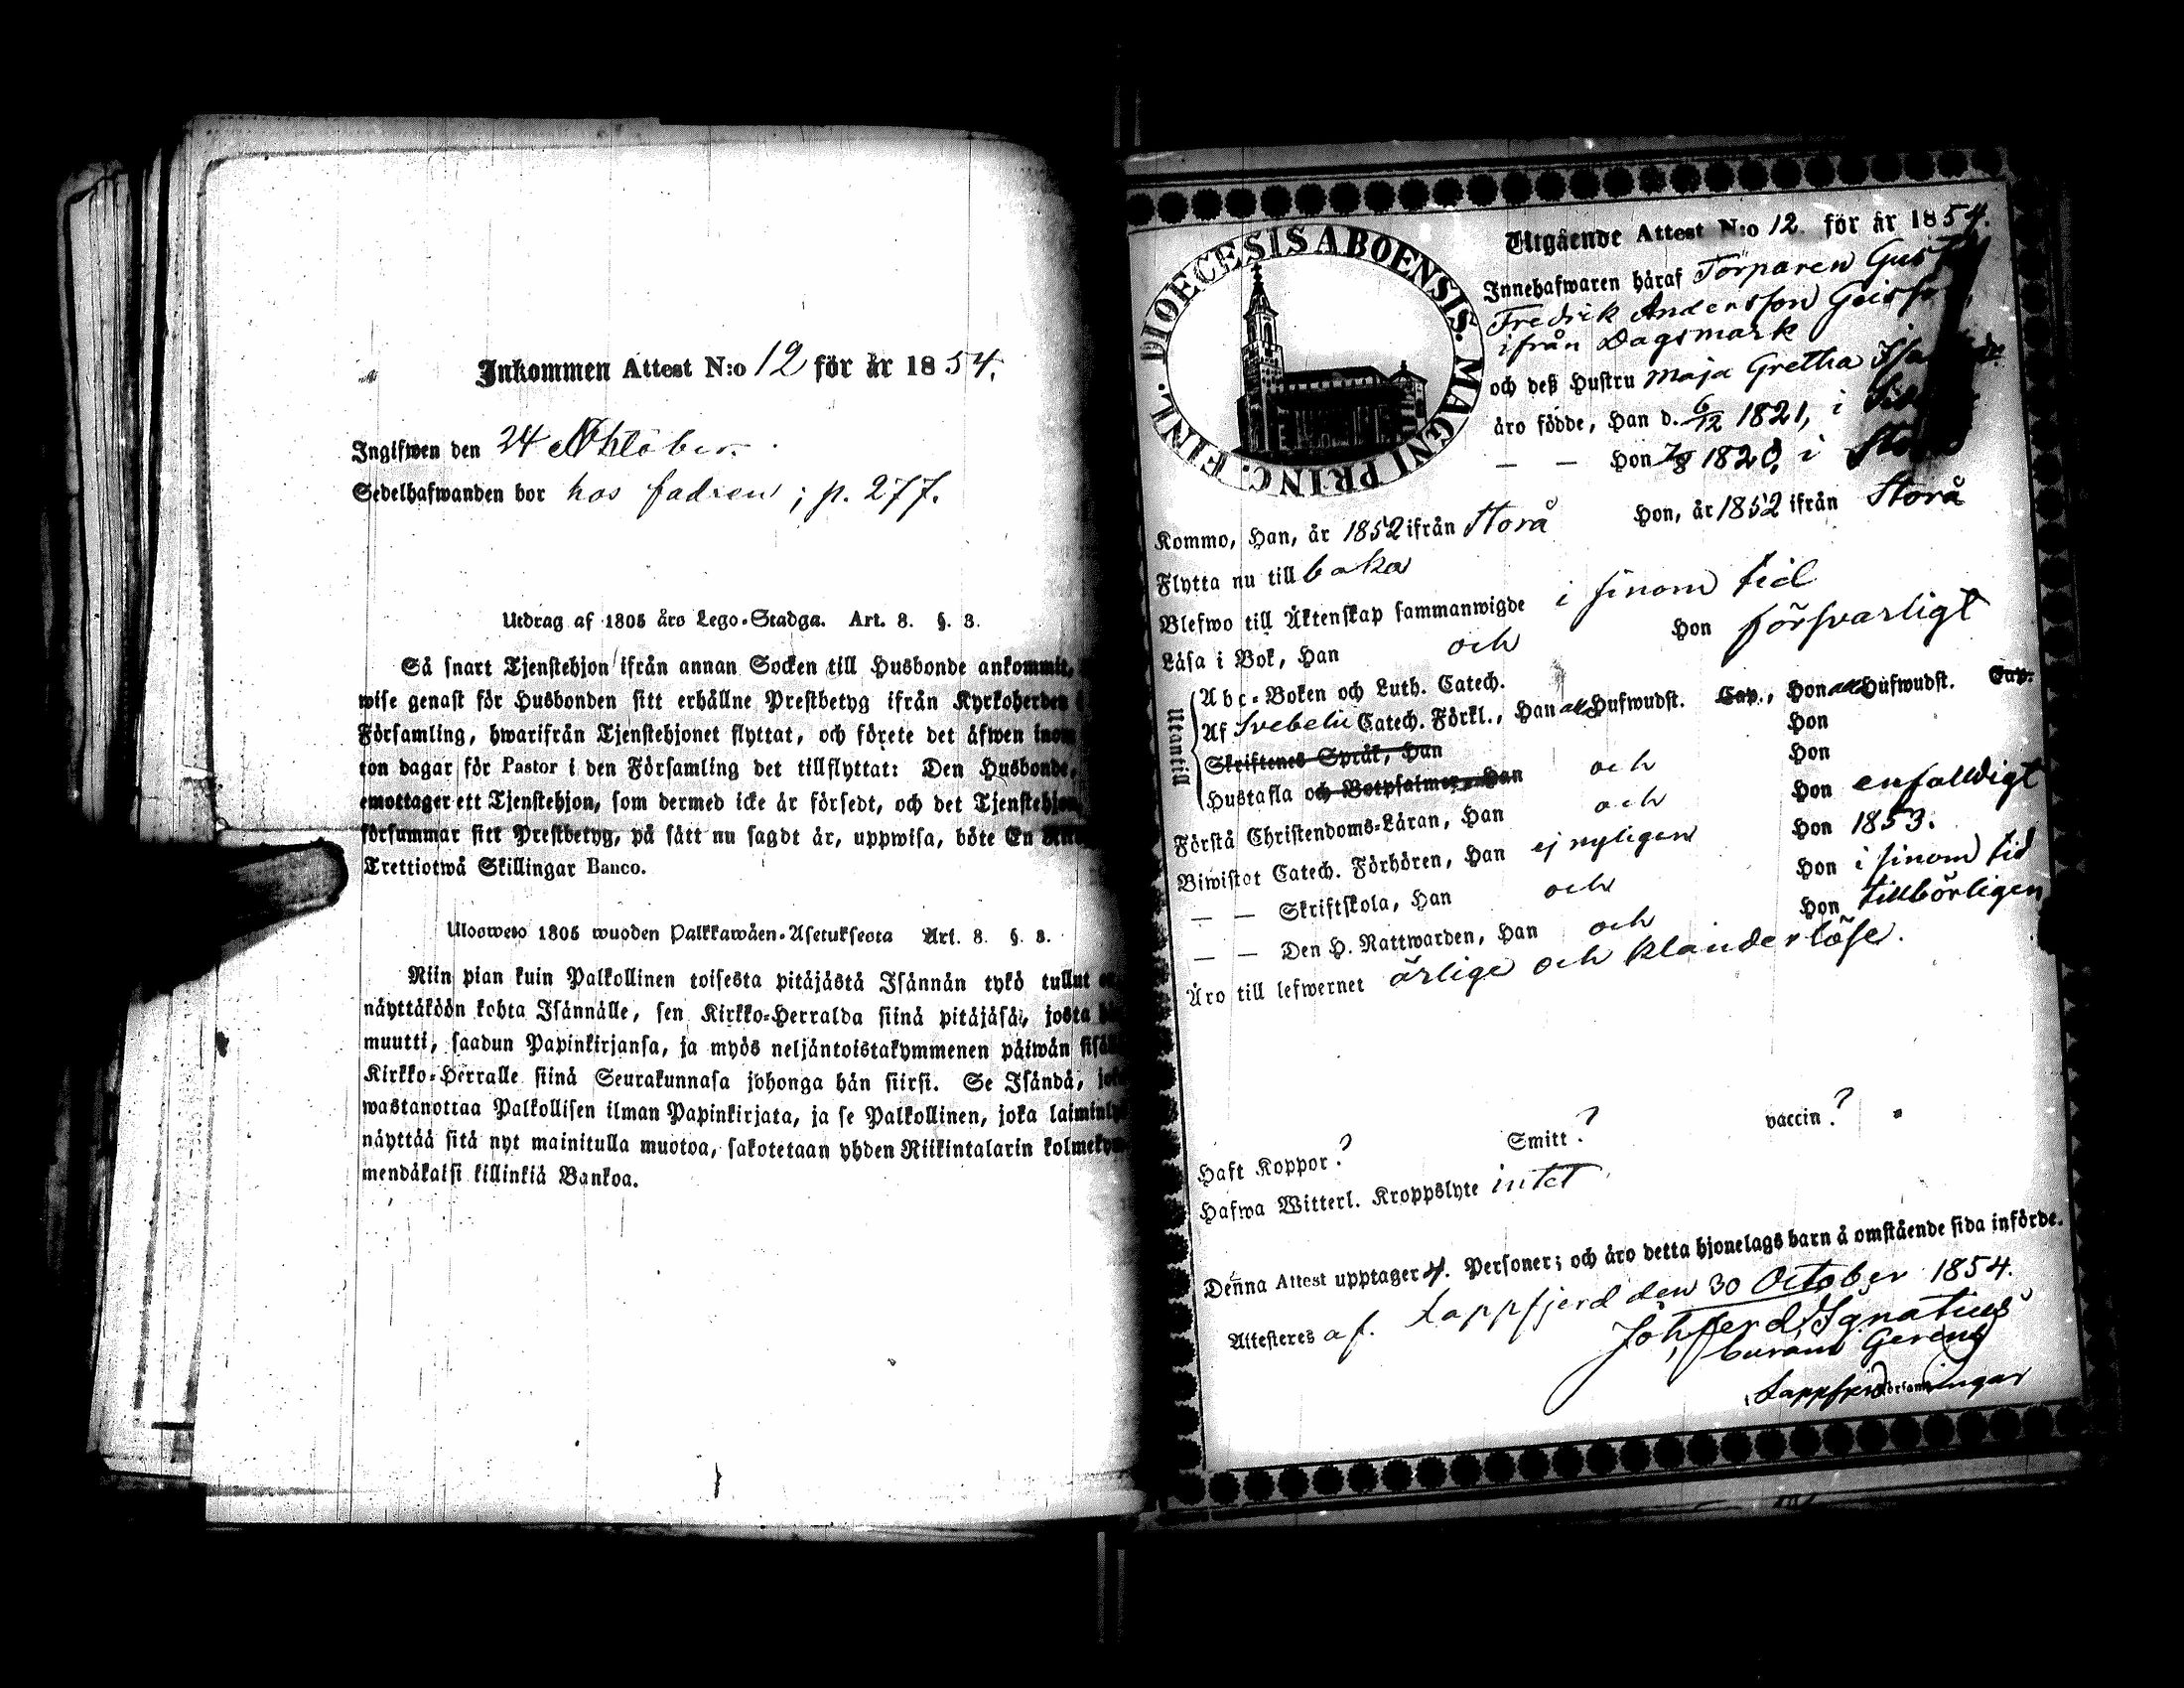 Inkommen Attest N:o 12 för år 1854.
Ingifwen den 24 Oktober.
Sedelhafwanden bor hos fadren; p. 277.
Utdrag af 1805 års Lego-Stadga. Art. 8. §. 3.
Så snart Tjenstehjon ifrån annan Socken till Husbonde ankommit,
wise genast för Husbonden sitt erhållne Prestbetyg ifrån Kyrkoherden
Församling, hwarifrån Tjenstehjonet flyttat, och förete det äfwen inom
ton dagar för Pastor i den Församling det tillflyttat: Den Husbonde,
emottager ett Tjenstehjon, som dermed icke är försedt, och det Tjenstehjon,
försummar sitt Prestbetyg, på sätt nu sagdt är, uppwisa, böte En
Trettiotwå Skillingar Banco.
Ulosweto 1805 wuoden Palkkawäen-Asetuksesta Art. 8. §. 3.
Niin pian kuin Palkollinen toisesta pitäjästä Isännän tykö tullut
näyttäköön kohta Isännälle, sen Kirkko-Herralda siinä pitäjäsä, josta
muutti, saadun Papinkirjansa, ja myös neljäntoistakymmenen päiwän
Kirkko-Herralle siinä Seurakunnasa johonga hän siirsi. Se Isändä,
wastanottaa Palkollisen ilman Papinkirjata, ja se Palkollinen, joka
näyttää sitä nyt mainitulla muotoa, sakotetaan yhden Riikintalarin
mendäkaksi killinkiä Bankoa.
DIOECESIS ABOENSIS. MAGNI PRINC. FINL.
Utgående Attest N:o 12 för år 1854.
Innehafwaren häraf Torparen
Fredrik Andersson
ifrån Dagsmark
och deß Hustru Maja Gretha
äro födde, Han d. 6/12 1821, i
— — Hon 7/8 1820, i Storå
Kommo, Han, år 1852 ifrån Storå Hon, år 1852 ifrån Storå
Flytta nu till baka
Blefwo till Äktenskap sammanwigde i sinom tid
Läsa i Bok, Han och Hon försvarligt
Utantill
Abc-Boken och Luth. Catech.
Af Svebelii Catech. Förkl., Han Hufwudst. Cap., Hon Hufwudst. Cap.
Skriftenes Språk, Han Hon
Hustafla och Botpsalmer, Han Hon
Förstå Christendoms-Läran, Han och Hon enfalldigt
Biwistat Catech. Förhören, Han och Hon 1853.
— — Skriftskola, Han ej nyligen Hon i sinom tid
— — Den H. Nattwarden, Han och Hon tillbörligen
Äro till lefwernet och ärlige och klanderlöse.
Haft Koppor? Smitt? vaccin?
Hafwa Witterl. Kroppslyte intet
Denna Attest upptager 4. Personer; och äro detta hjonelags barn å omstående sida införde.
Attesteres af. Lappfjerd den 30 October 1854.
Joh. Ferd. Ignatius